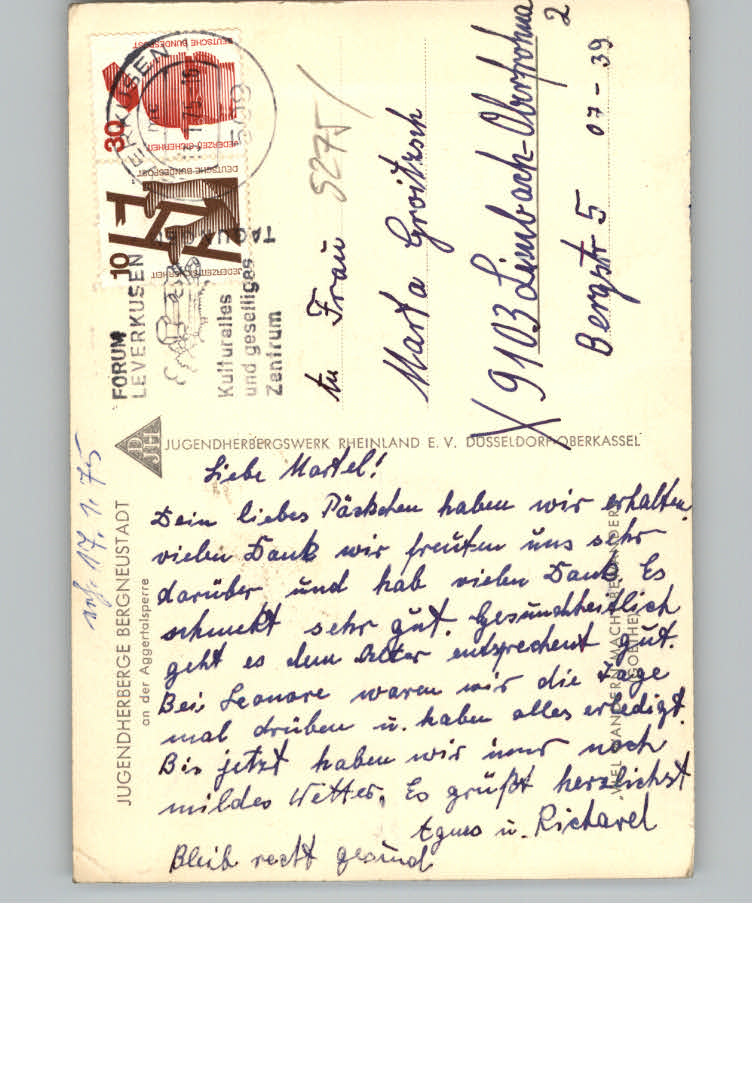 erh. 17.1.75
JUGENDHERBERGE BERGNEUSTADT
an der Aggertalsperre
Liebe Martel!
Dein liebes Päckchen haben wir erhalten,
vielen Dank wir freuten uns sehr
darüber und hab vielen Dank. Es
schmekt sehr gut. Gesundheitlich
geht es dem Alter entsprechent gut.
Bei Leonore waren wir die Tage
mal drüben u. haben alles erledigt.
Bis jetzt haben wir imer noch
mildes Wetter. Es grüßt herzlichst
Agnes u. Richard
Bleib recht gesund
"VIEL WANDERN MACHT BEWANDERT"
(GOETHE)
JUGENDHERBERGSWERK RHEINLAND E. V. DÜSSELDORF-OBERKASSEL
DJH
FORUM
LEVERKUSEN
Kulturelles
und geselliges
Zentrum
TAGUNGS
LEVERKUSEN
509
30
DEUTSCHE BUNDESPOST
JEDERZEIT SICHERHEIT
10
DEUTSCHE BUNDESPOST
JEDERZEIT SICHERHEIT
5275/
An Frau
Marta Groitzsch
9103 Limbach-Oberfrohna
2
Bergstr 5 07-39